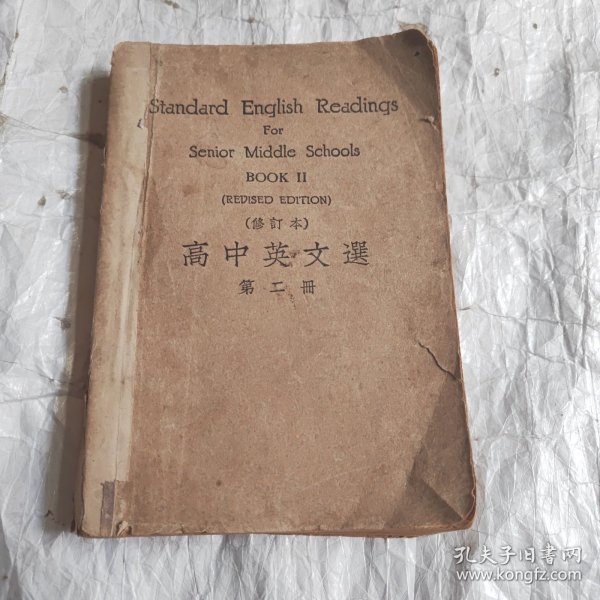 Standard English Readings
For
Senior Middle Schools
BOOK II
(REVISED EDITION)
(修訂本)
高中英文選
第二冊
孔夫子旧书网
www.kongfz.com